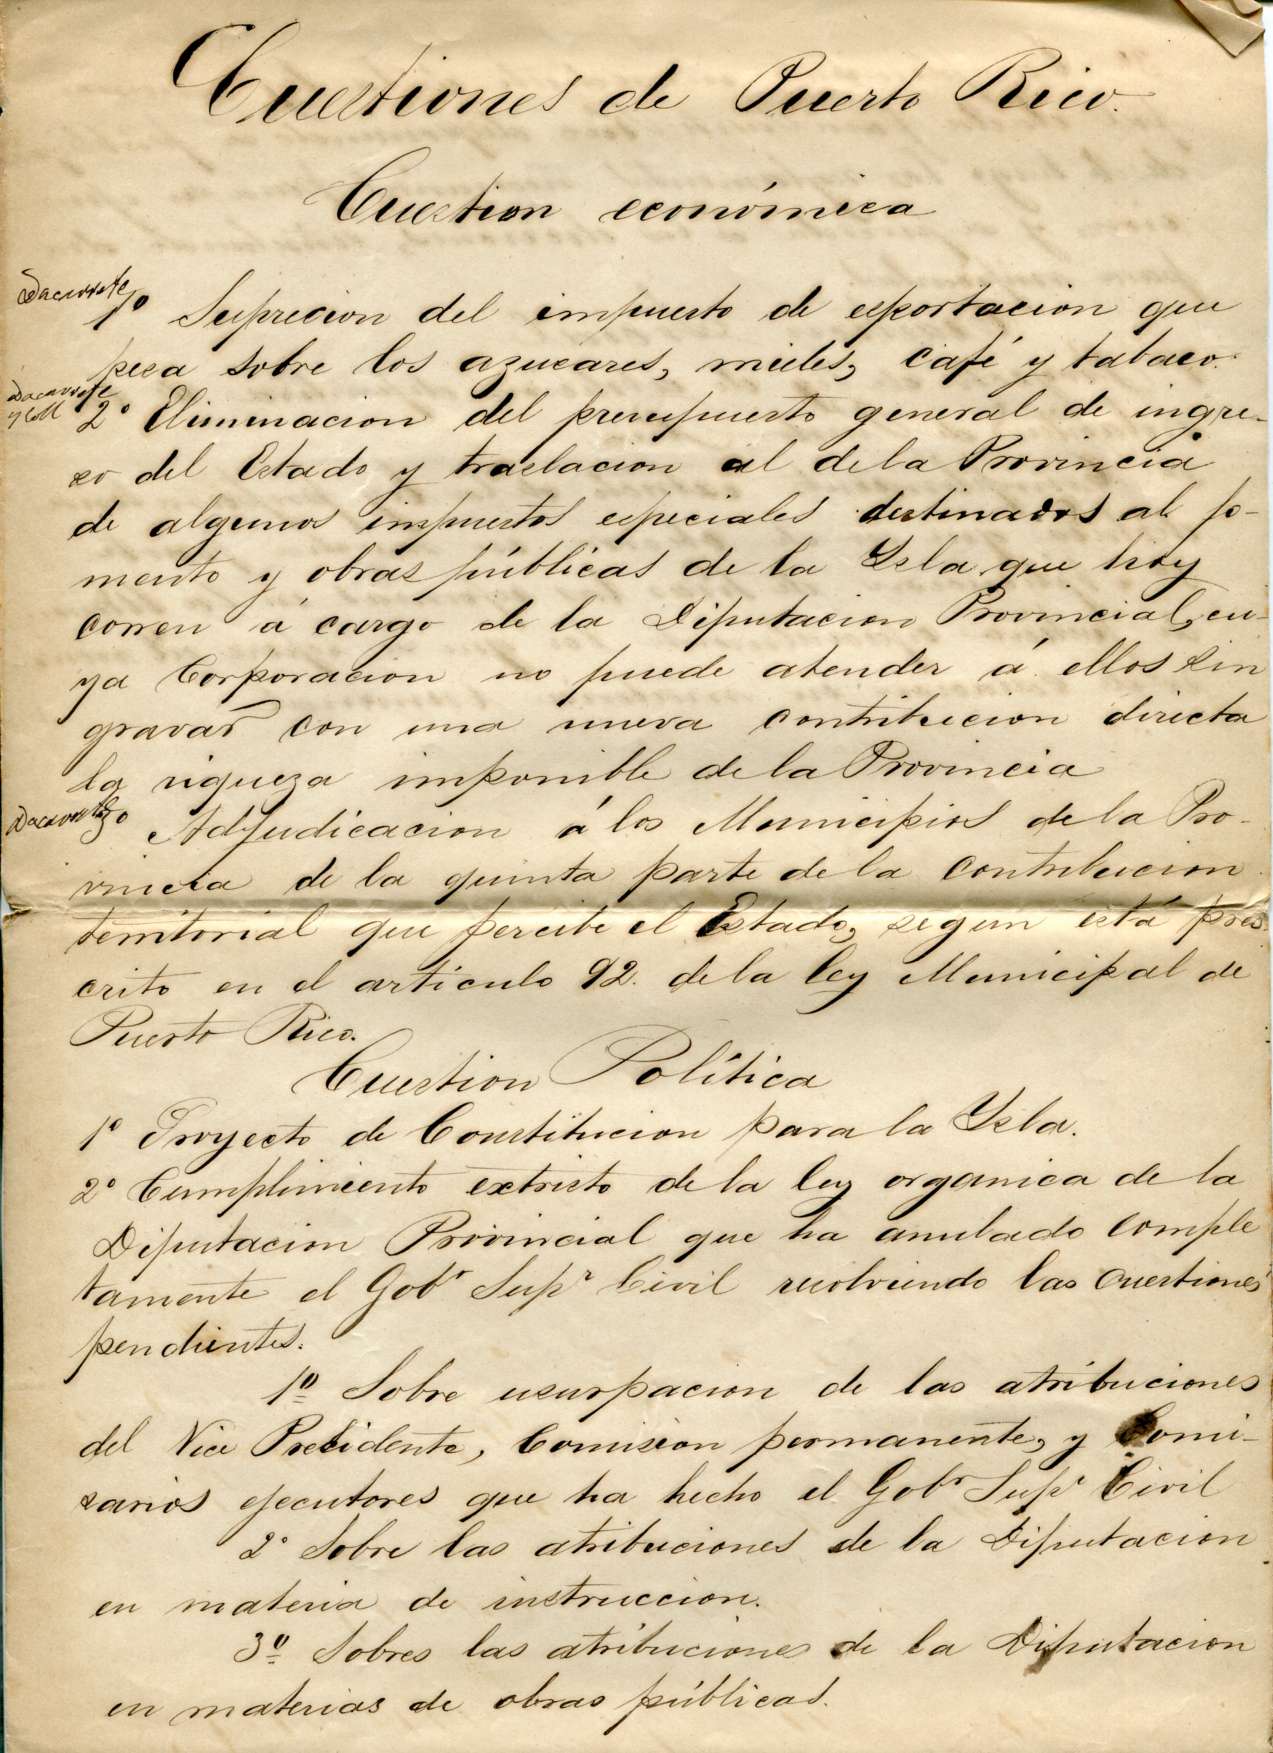 Cuestiones de Puerto Rico.
Cuestion económica
Dacarrete
1º Suprecion del impuesto de esportacion que
pesa sobre los azucares, mieles, café y tabaco.
Dacarrete
y Coll
2º Eliminacion del presupuesto general de ingre-
so del Estado y traslacion al de la Provincia
de algunos impuestos especiales destinados al fo-
mento y obras públicas de la Ysla que hoy
corren á cargo de la Diputacion Provincial, cu-
ya Corporacion no puede atender á ellos sin
gravar con una nueva contribucion directa
la riqueza imponible de la Provincia
Dacarrete
3º Adjudicacion á los Municipios de la Pro-
vincia de la quinta parte de la contribucion
territorial que percibe el Estado, segun está pres-
crito en el articulo 92. de la ley Municipal de
Puerto Rico.
Cuestion Política
1º Proyecto de Constitucion para la Ysla.
2º Cumplimiento extricto de la ley organica de la
Diputacion Provincial que ha anulado comple
tamente el Gobr Supr Civil resolviendo las cuestiones
pendientes.
1º Sobre usurpacion de las atribuciones
del Vice Presidente, Comision permanente, y Comi-
sarios ejecutores que ha hecho el Gobr Supr Civil
2º Sobre las atribuciones de la Diputacion
en materia de instruccion.
3º Sobres las atribuciones de la Diputacion
en materias de obras públicas.